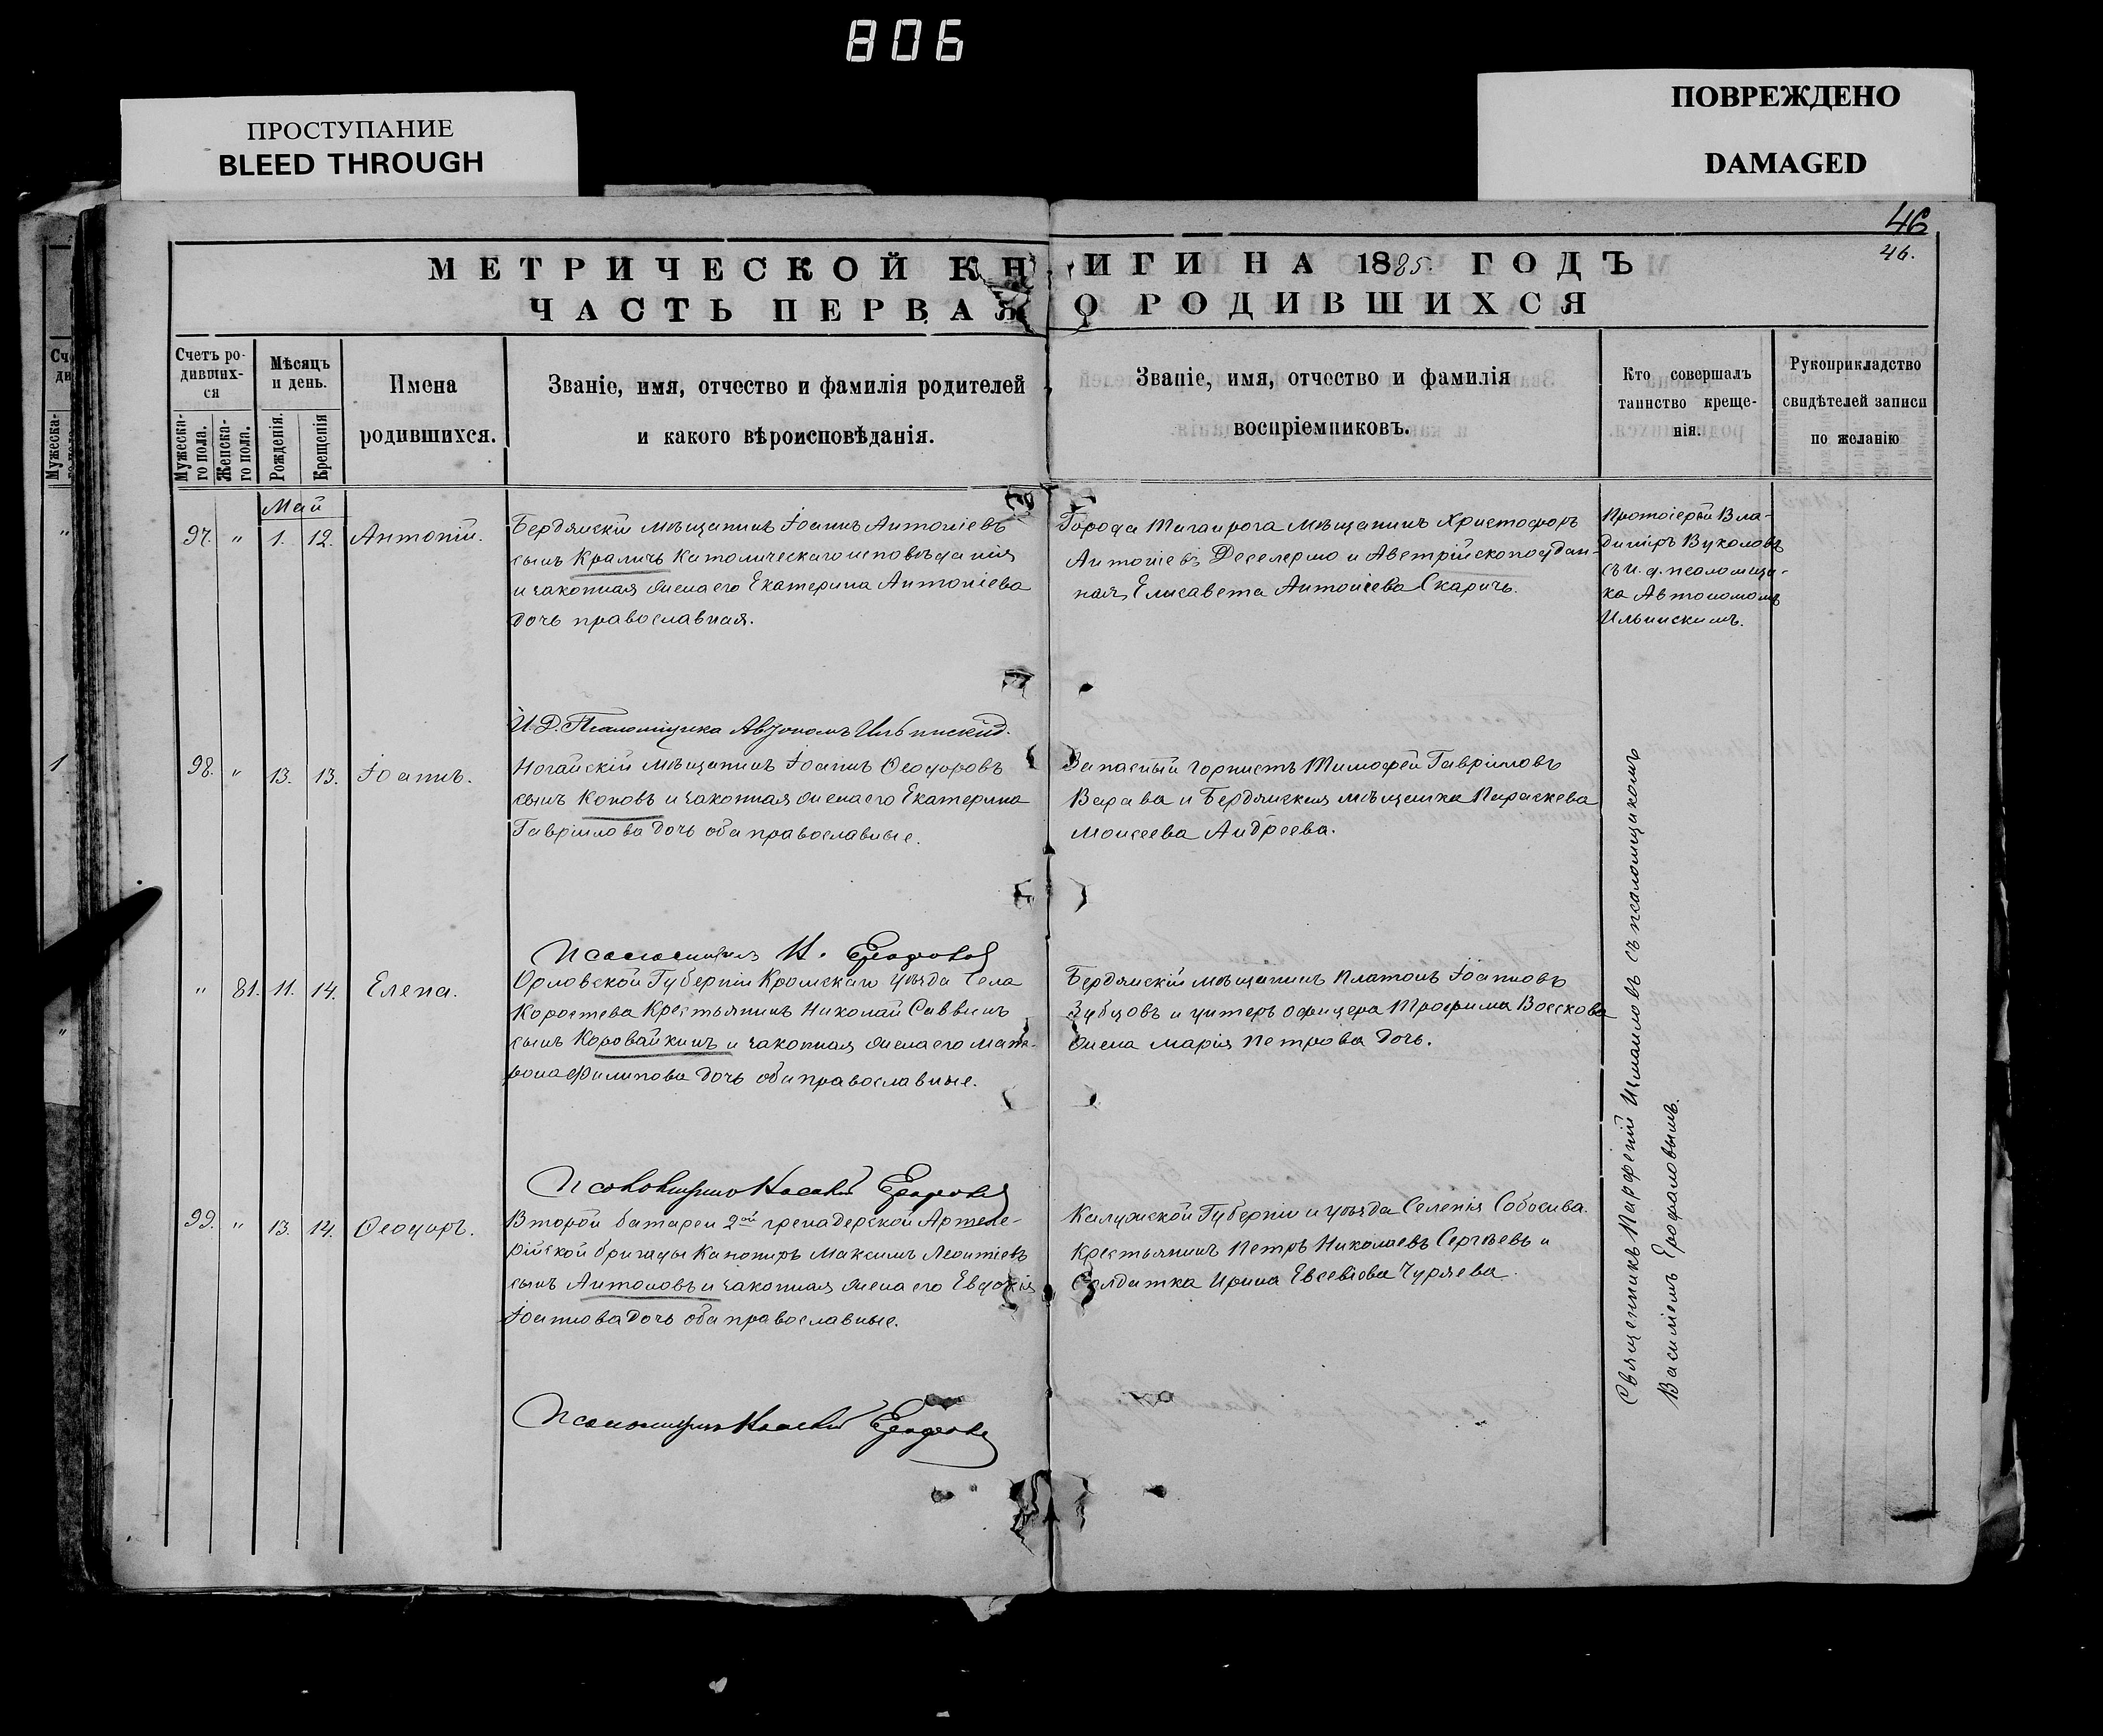 806
ПРОСТУПАНИЕ
BLEED THROUGH
ПОВРЕЖДЕНО
DAMAGED
46
46.
МЕТРИЧЕСКОЙ КНИГИ НА 1885. ГОДЪ
ЧАСТЬ ПЕРВАЯ О РОДИВШИХСЯ
Счетъ ро-
дивших-
ся
Мужеска-
го пола.
Женска-
го пола.
Мѣсяцъ
и день.
Рожденія.
Крещенія
Имена
родившихся.
Званіе, имя, отчество и фамилія родителей
и какого вѣроисповѣданія.
Званіе, имя, отчество и фамилія
воспріемниковъ.
Кто совершалъ
таинство креще-
нія.
Рукоприкладство
свидѣтелей записи
по желанію
Май
97. " 1. 12. Антоній.
Бердянскій мѣщанинъ Іоаннъ Антоніевъ
сынъ Краличъ Католическаго исповѣданія
и законная жена его Екатерина Антоніева
дочь православная.
Города Таганрога мѣщанинъ Христофоръ
Антоніевъ и Австрійскоподдан-
ная Елисавета Антоніева Скаричъ.
Протоіерей Вла-
диміръ Вуколовъ
съ и. д. псаломщи-
ка Автономомъ
Ильинскимъ.
И.Д. Псаломщика Автономъ Ильинскій.
98. " 13. 13. Іоаннъ.
Ногайскій мѣщанинъ Іоаннъ Ѳеодоровъ
сынъ Коповъ и законная жена его Екатерина
Гавріилова дочь оба православные.
Запасный горнистъ Тимофей Гавриловъ
Варава и Бердянская мѣщанка Параскева
Моисеева Андреева.
Псаломщикъ
" 81. 11. 14. Елена.
Орловской Губерніи Кромскаго уѣзда Села
Коростева Крестьянинъ Николай Саввинъ
сынъ Коровайкинъ и законная жена его Матт-
рона Филипова дочь оба православные.
Бердянскій мѣщанинъ Платонъ Іоанновъ
Зубцовъ и унтеръ офицера Трофима Воескова
жена Марія Петрова дочь.
Псаломщикъ
99. " 13. 14. Ѳеодоръ.
Второй батареи 2ой гренадерской Артиле-
рійской бригады Канониръ Максимъ Леонтіевъ
сынъ Антоновъ и законная жена его Евдокія
Іоаннова дочь оба православные.
Калужской Губерніи и уѣзда Селенія
Крестьянинъ Петръ Николаевъ Сергѣевъ и
Солдатка Ирина Евсевіева Чуряева.
Псаломщикъ
Священникъ Парфеній Шмаиловъ съ псаломщикомъ
Василіемъ